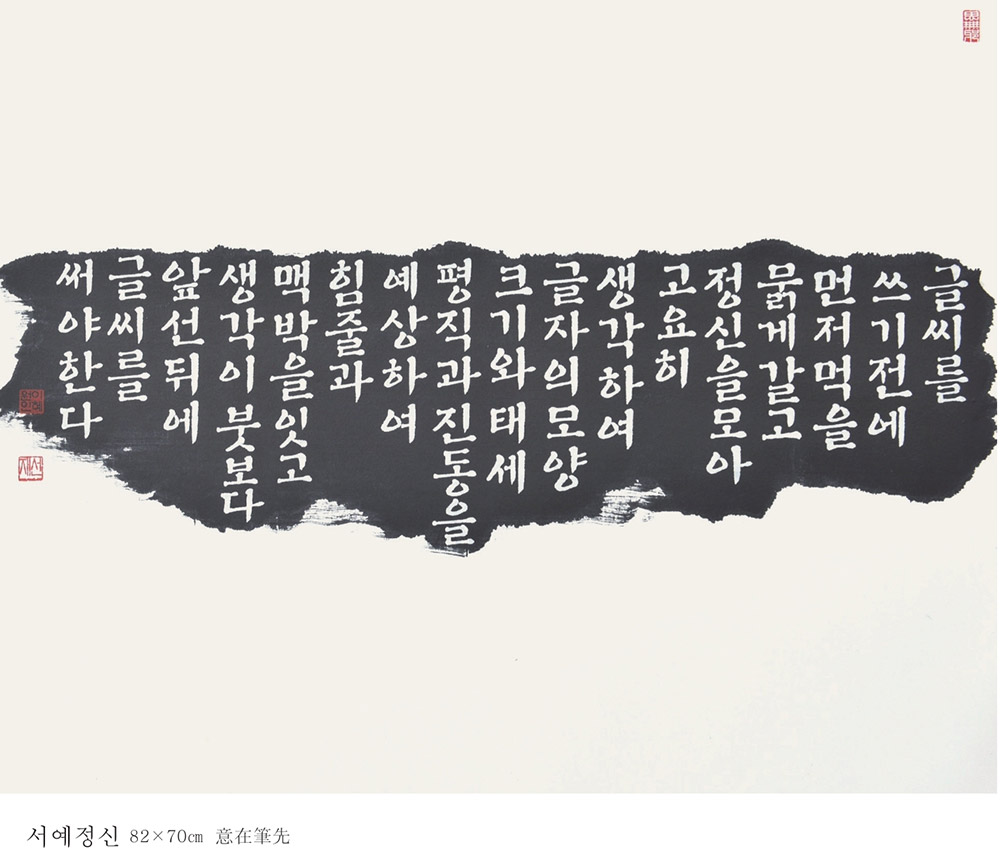 글씨를
쓰기전에
먼저먹을
묽게갈고
정신을모아
고요히
생각하여
글자의모양
크기와태세
평직과진동을
예상하여
힘줄과
맥박을잇고
생각이붓보다
앞선뒤에
글씨를
써야한다
서예정신 82×70㎝ 意在筆先